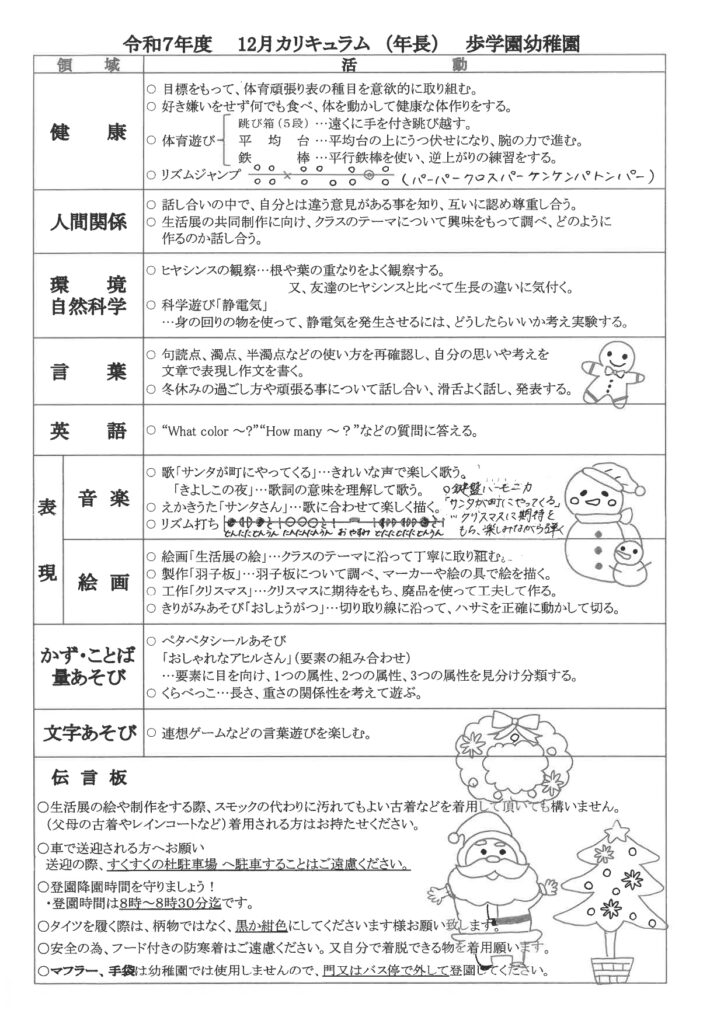 令和7年度　12月カリキュラム　（年長）　歩学園幼稚園
領　域　活　動
健　康
○ 目標をもって、体育頑張り表の種目を意欲的に取り組む。
○ 好き嫌いをせず何でも食べ、体を動かして健康な体作りをする。
○ 体育遊び
跳び箱（5段）…遠くに手を付き跳び越す。
平　均　台…平均台の上にうつ伏せになり、腕の力で進む。
鉄　棒…平行鉄棒を使い、逆上がりの練習をする。
○ リズムジャンプ （パーパークロスパーケンケンパトンパー）
人間関係
○ 話し合いの中で、自分とは違う意見がある事を知り、互いに認め尊重し合う。
○ 生活展の共同制作に向け、クラスのテーマについて興味をもって調べ、どのように
作るのか話し合う。
環　境
自然科学
○ ヒヤシンスの観察…根や葉の重なりをよく観察する。
又、友達のヒヤシンスと比べて生長の違いに気付く。
○ 科学遊び「静電気」
…身の回りの物を使って、静電気を発生させるには、どうしたらいいか考え実験する。
言　葉
○ 句読点、濁点、半濁点などの使い方を再確認し、自分の思いや考えを
文章で表現し作文を書く。
○ 冬休みの過ごし方や頑張る事について話し合い、滑舌よく話し、発表する。
英　語
○ “What color ～?”“How many ～？”などの質問に答える。
表　現
音　楽
○ 歌「サンタが町にやってくる」…きれいな声で楽しく歌う。
「きよしこの夜」…歌詞の意味を理解して歌う。
○ えかきうた「サンタさん」…歌に合わせて楽しく描く。
○ リズム打ち
○鍵盤ハーモニカ
「サンタが町にやってくる」
…クリスマスに期待を
もち、楽しみながら弾く
絵　画
○ 絵画「生活展の絵」…クラスのテーマに沿って丁寧に取り組む。
○ 製作「羽子板」…羽子板について調べ、マーカーや絵の具で絵を描く。
○ 工作「クリスマス」…クリスマスに期待をもち、廃品を使って工夫して作る。
○ きりがみあそび「おしょうがつ」…切り取り線に沿って、ハサミを正確に動かして切る。
かず・ことば
量あそび
○ ペタペタシールあそび
「おしゃれなアヒルさん」（要素の組み合わせ）
…要素に目を向け、1つの属性、2つの属性、3つの属性を見分け分類する。
○ くらべっこ…長さ、重さの関係性を考えて遊ぶ。
文字あそび
○ 連想ゲームなどの言葉遊びを楽しむ。
伝 言 板
○生活展の絵や制作をする際、スモックの代わりに汚れてもよい古着などを着用して頂いても構いません。
（父母の古着やレインコートなど）着用される方はお持たせください。
○車で送迎される方へお願い
送迎の際、すくすくの杜駐車場 へ駐車することはご遠慮ください。
○登園降園時間を守りましょう！
・登園時間は8時～8時30分迄です。
○タイツを履く際は、柄物ではなく、黒か紺色にしてくださいます様お願い致します。
○安全の為、フード付きの防寒着はご遠慮ください。又自分で着脱できる物を着用願います。
○マフラー、手袋は幼稚園では使用しませんので、門又はバス停で外して登園してください。